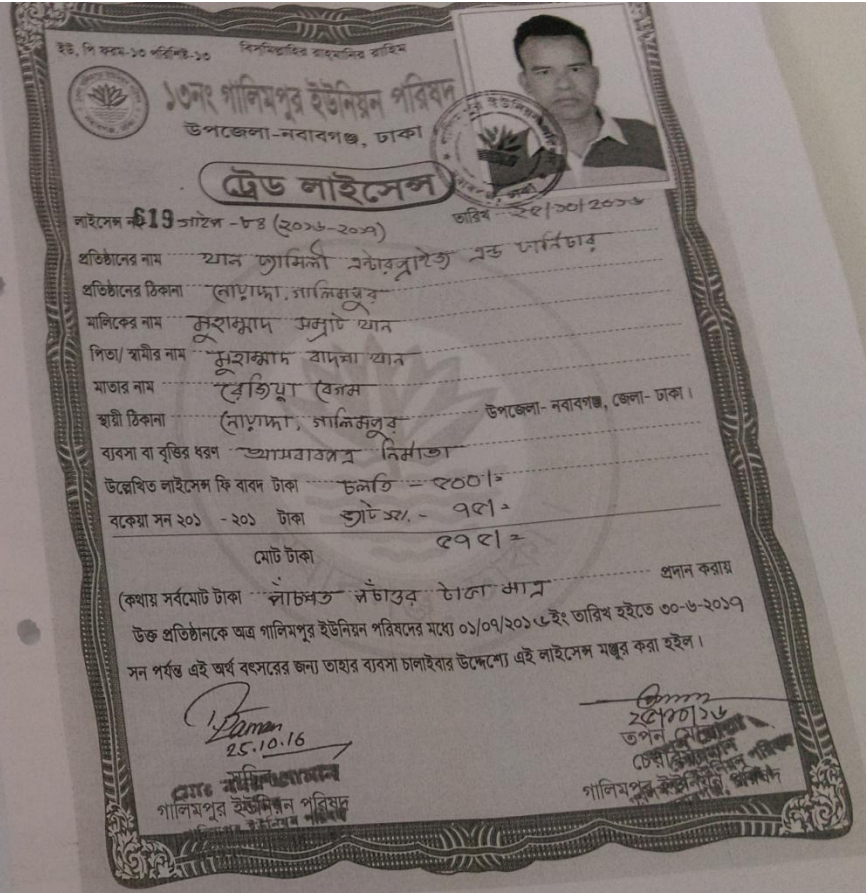 ইউ, পি ফরম-১০ পরিশিষ্ট-১০
বিসমিল্লাহির রাহমানির রাহিম
১৩নং গালিমপুর ইউনিয়ন পরিষদ
উপজেলা-নবাবগঞ্জ, ঢাকা
ট্রেড লাইসেন্স
লাইসেন্স নং 619 গালিম -৮৪ (২০১৬-২০১৭)
তারিখ ২৫/১০/২০১৬
প্রতিষ্ঠানের নাম খান ফ্যামিলী এন্টারপ্রাইজ এন্ড ফার্নিচার
প্রতিষ্ঠানের ঠিকানা নোয়াদ্দা, গালিমপুর
মালিকের নাম মুহাম্মাদ সম্রাট খান
পিতা/ স্বামীর নাম মুহাম্মাদ বাদশা খান
মাতার নাম রেজিয়া বেগম
স্থায়ী ঠিকানা নোয়াদ্দা, গালিমপুর উপজেলা- নবাবগঞ্জ, জেলা- ঢাকা।
ব্যবসা বা বৃত্তির ধরণ আসবাবপত্র নির্মাতা
উল্লেখিত লাইসেন্স ফি বাবদ টাকা চলতি - ৫০০/=
বকেয়া সন ২০১ - ২০১ টাকা ভ্যাট ১৫% - ৭৫/=
মোট টাকা ৫৭৫/=
(কথায় সর্বমোট টাকা পাঁচশত পঁচাত্তর টাকা মাত্র প্রদান করায়
উক্ত প্রতিষ্ঠানকে অত্র গালিমপুর ইউনিয়ন পরিষদের মধ্যে ০১/০৭/২০১৬ইং তারিখ হইতে ৩০-৬-২০১৭
সন পর্যন্ত এই অর্থ বৎসরের জন্য তাহার ব্যবসা চালাইবার উদ্দেশ্যে এই লাইসেন্স মঞ্জুর করা হইল।
25.10.16
২৫/১০/১৬
তপন
গালিমপুর ইউনিয়ন পরিষদ
গালিমপুর ইউনিয়ন পরিষদ